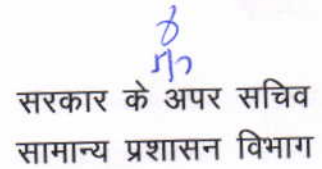 सरकार के अपर सचिव
सामान्य प्रशासन विभाग